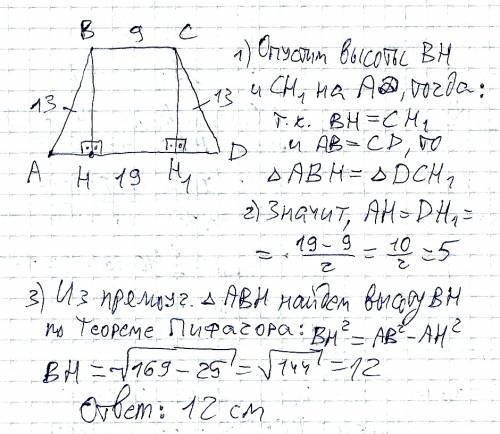 B 9 C
13
13
A H 19 H₁ D
1) Опустим высоты BH
и CH₁ на AD, тогда:
т.к. BH = CH₁
и AB = CD, то
△ABH = △DCH₁
2) Значит, AH = DH₁ =
= \frac{19-9}{2} = \frac{10}{2} = 5
3) Из прямоуг. △ABH найдем высоту BH
по Теореме Пифагора: BH² = AB² - AH²
BH = √169 - 25 = √144 = 12
Ответ: 12 см